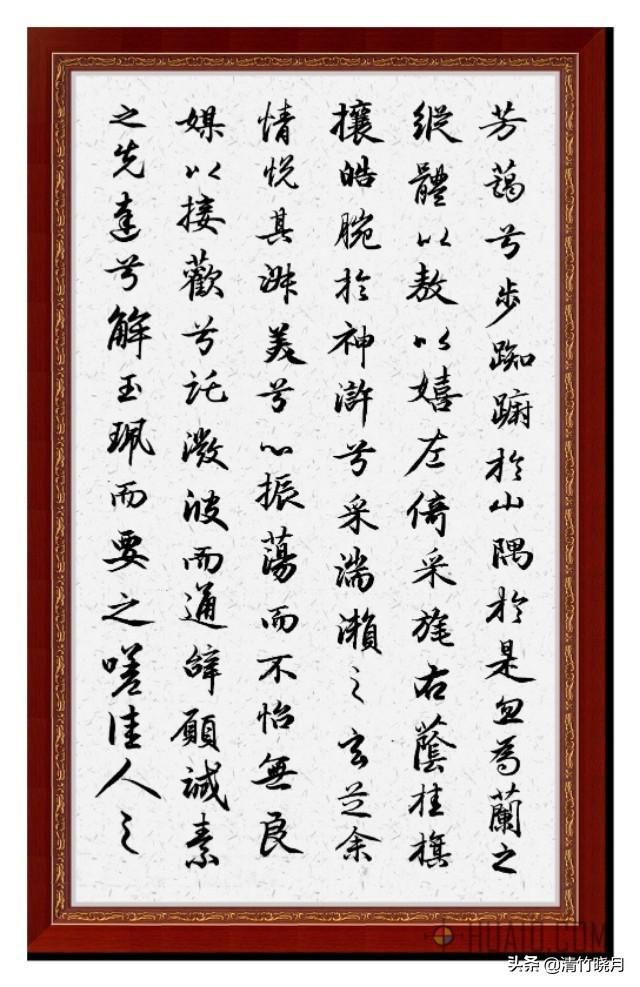 芳藹兮步踟躕於山隅於是忽焉蘭之
縱體以敖以嬉左倚采旄右蔭桂旗
攘皓腕於神滸兮采湍瀨之玄芝余
情悅其淑美兮心振蕩而不怡無良
媒以接歡兮託微波而通辭願誠素
之先達兮解玉珮而要之嗟佳人之
头条 @清竹晓月